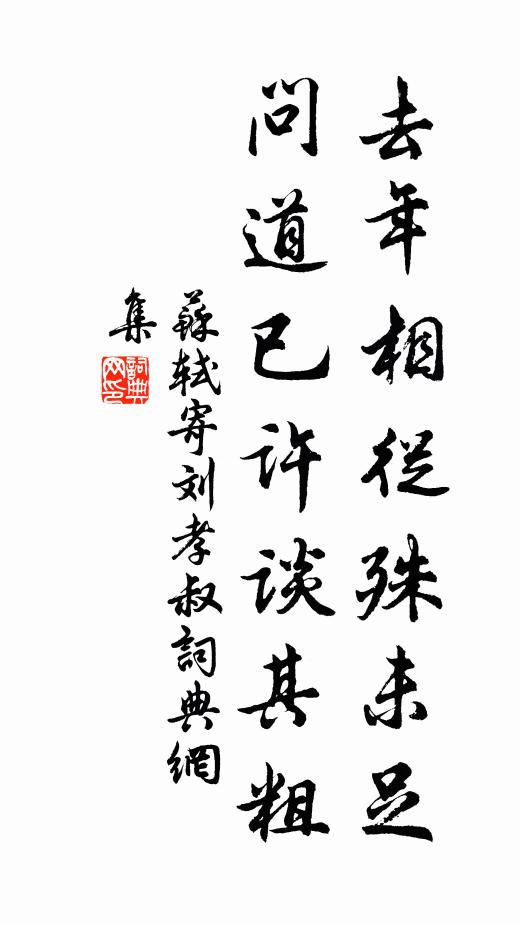 去年相從殊未足
問道已許談其粗
蘇軾寄刘孝叔詞典網
集
詞典网印